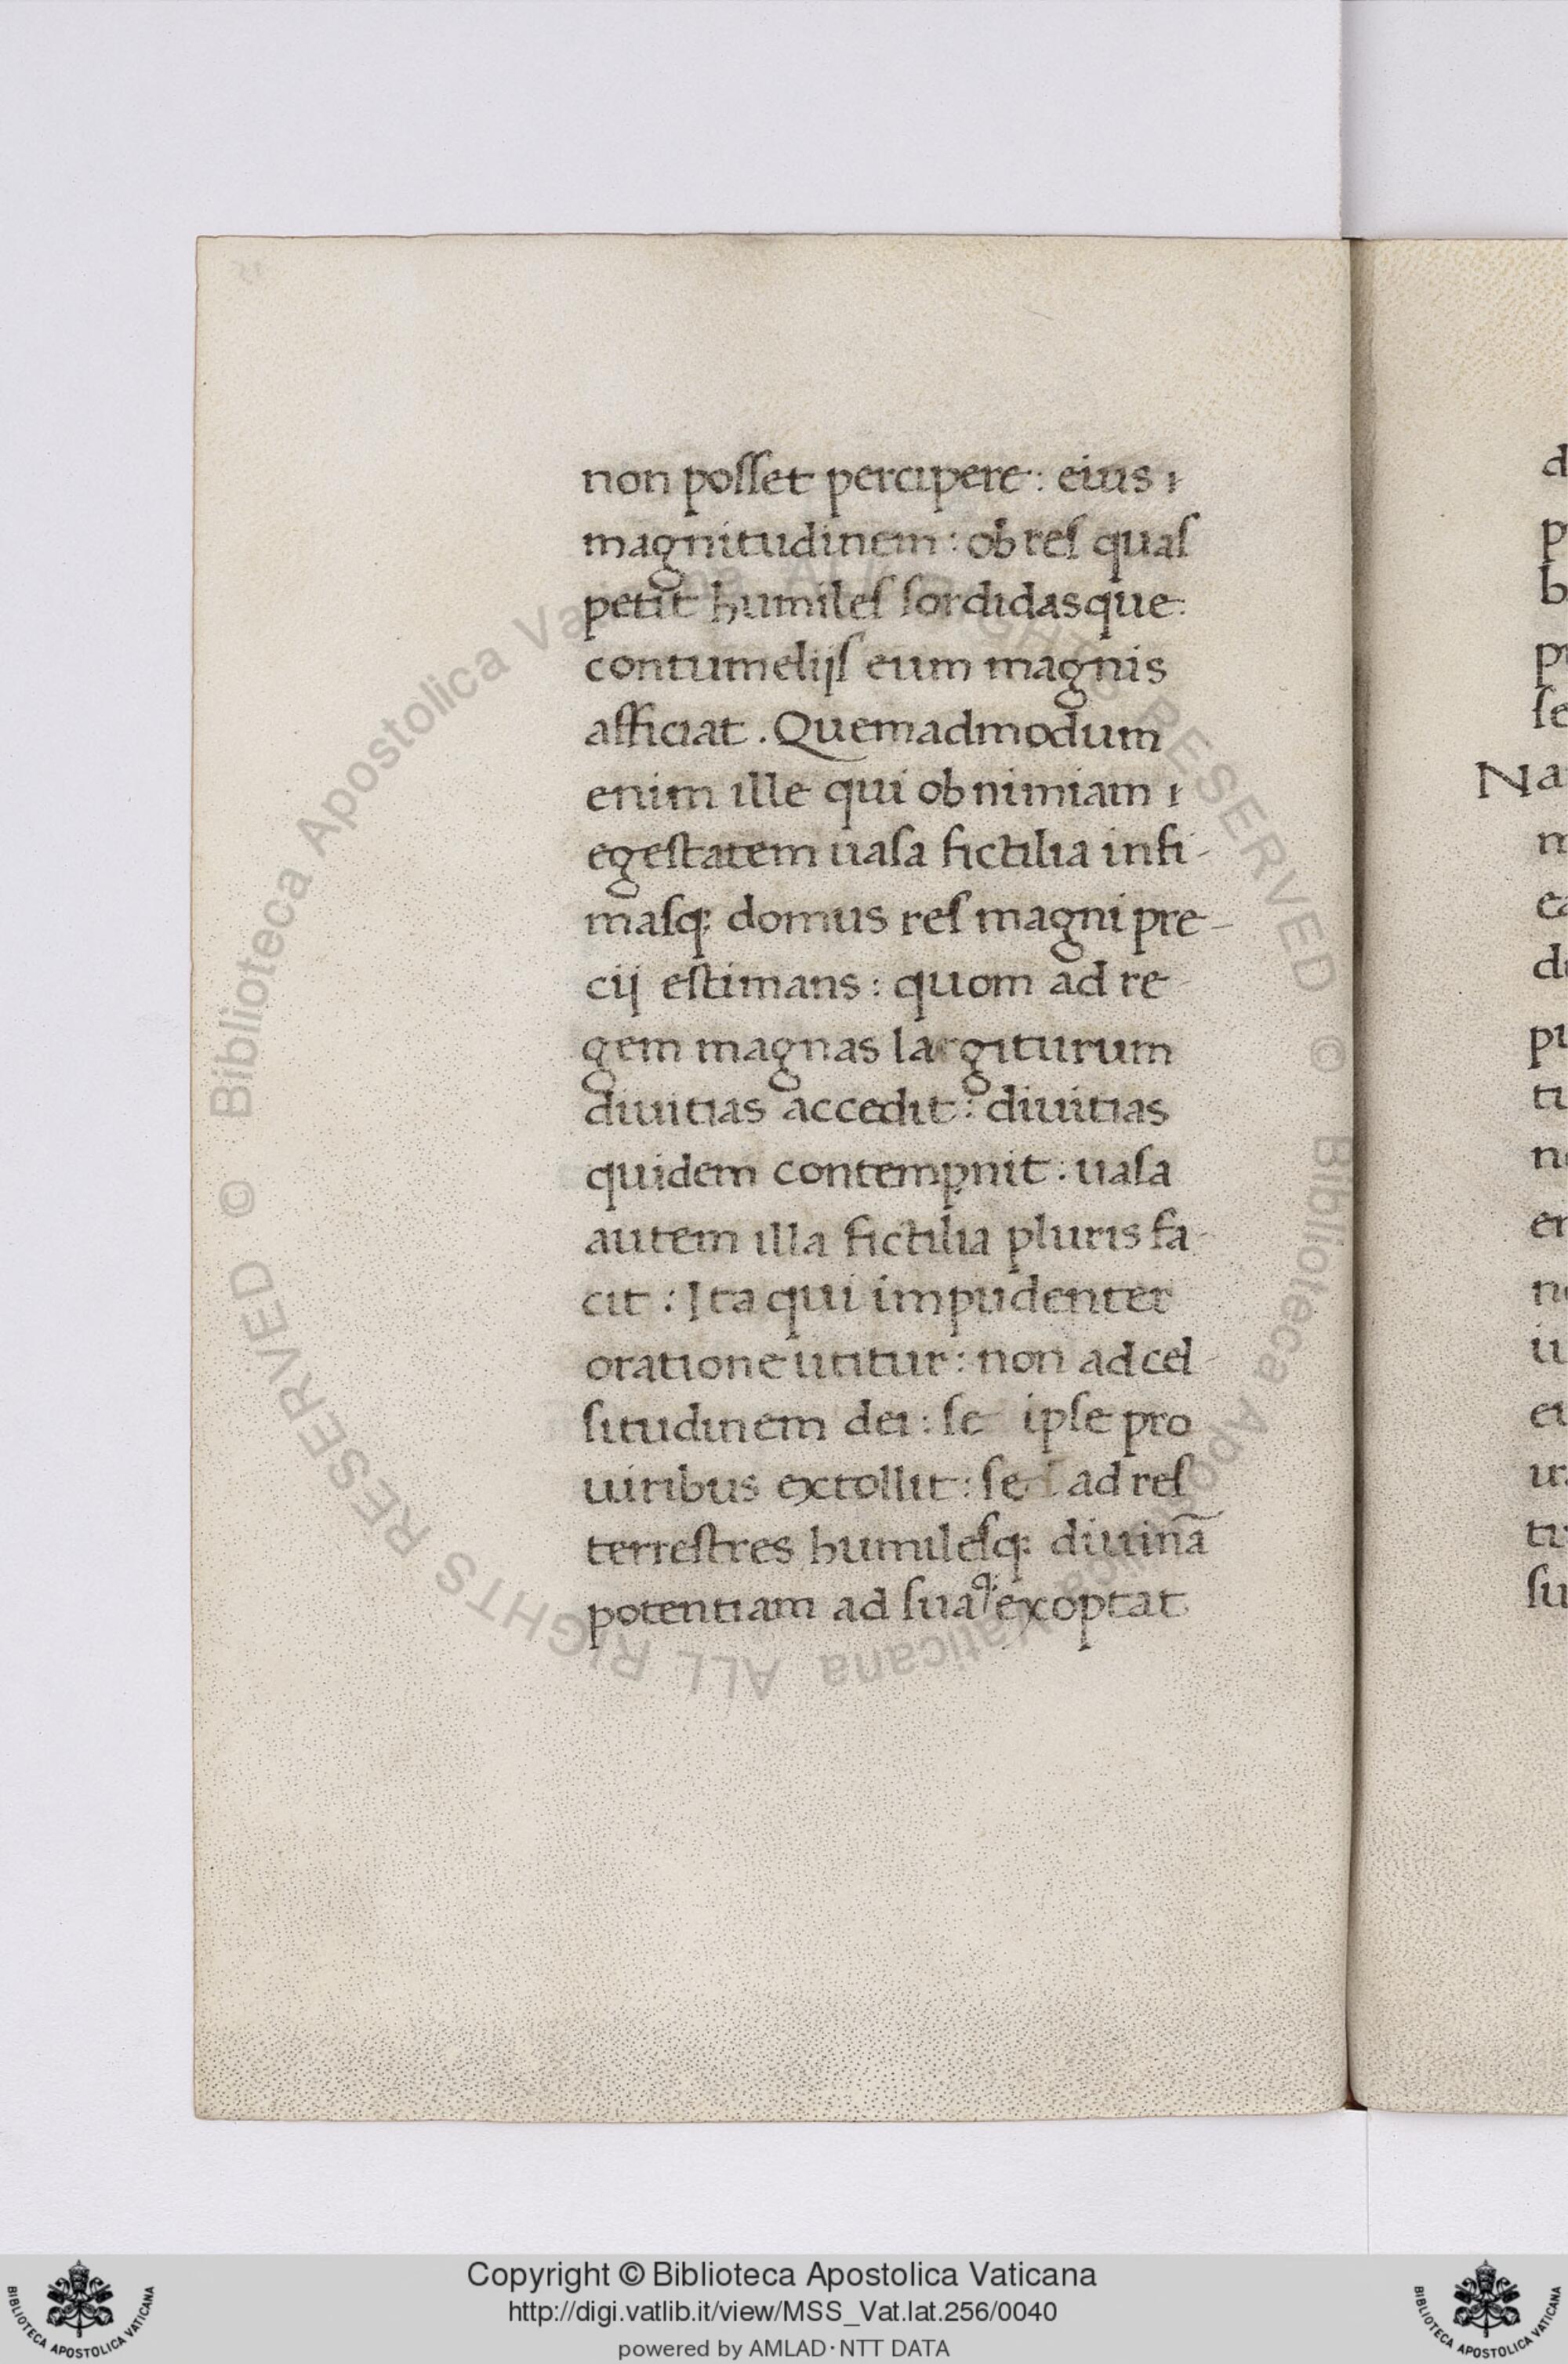 non posset percipere : eius ı
magnitudinem : ob res quas
petit humiles sordidasque
contumelijs eum magnis
afficiat . Quemadmodum
enim ille qui ob nimiam ı
egestatem uasa fictilia infi-
masq; domus res magni pre-
cij estimans : quom ad re-
gem magnas largiturum
diuitias accedit : diuitias
quidem contempnit : uasa
autem illa fictilia pluris fa-
cit : Ita qui impudenter
oratione utitur : non ad cel-
situdinem dei : se ipse pro
uiribus extollit : sed ad res
terrestres humilesq; diuinã
potentiam ad sua exoptat
d
p
b
p
se
Na
m
ea
d
pu
tu
ne
en
no
iu
et
ur
tu
su
Biblioteca Apostolica Vaticana ALL RIGHTS RESERVED © Biblioteca Apostolica Vaticana ALL RIGHTS RESERVED ©
Copyright © Biblioteca Apostolica Vaticana
http://digi.vatlib.it/view/MSS_Vat.lat.256/0040
powered by AMLAD·NTT DATA
BIBLIOTECA APOSTOLICA VATICANA
BIBLIOTECA APOSTOLICA VATICANA